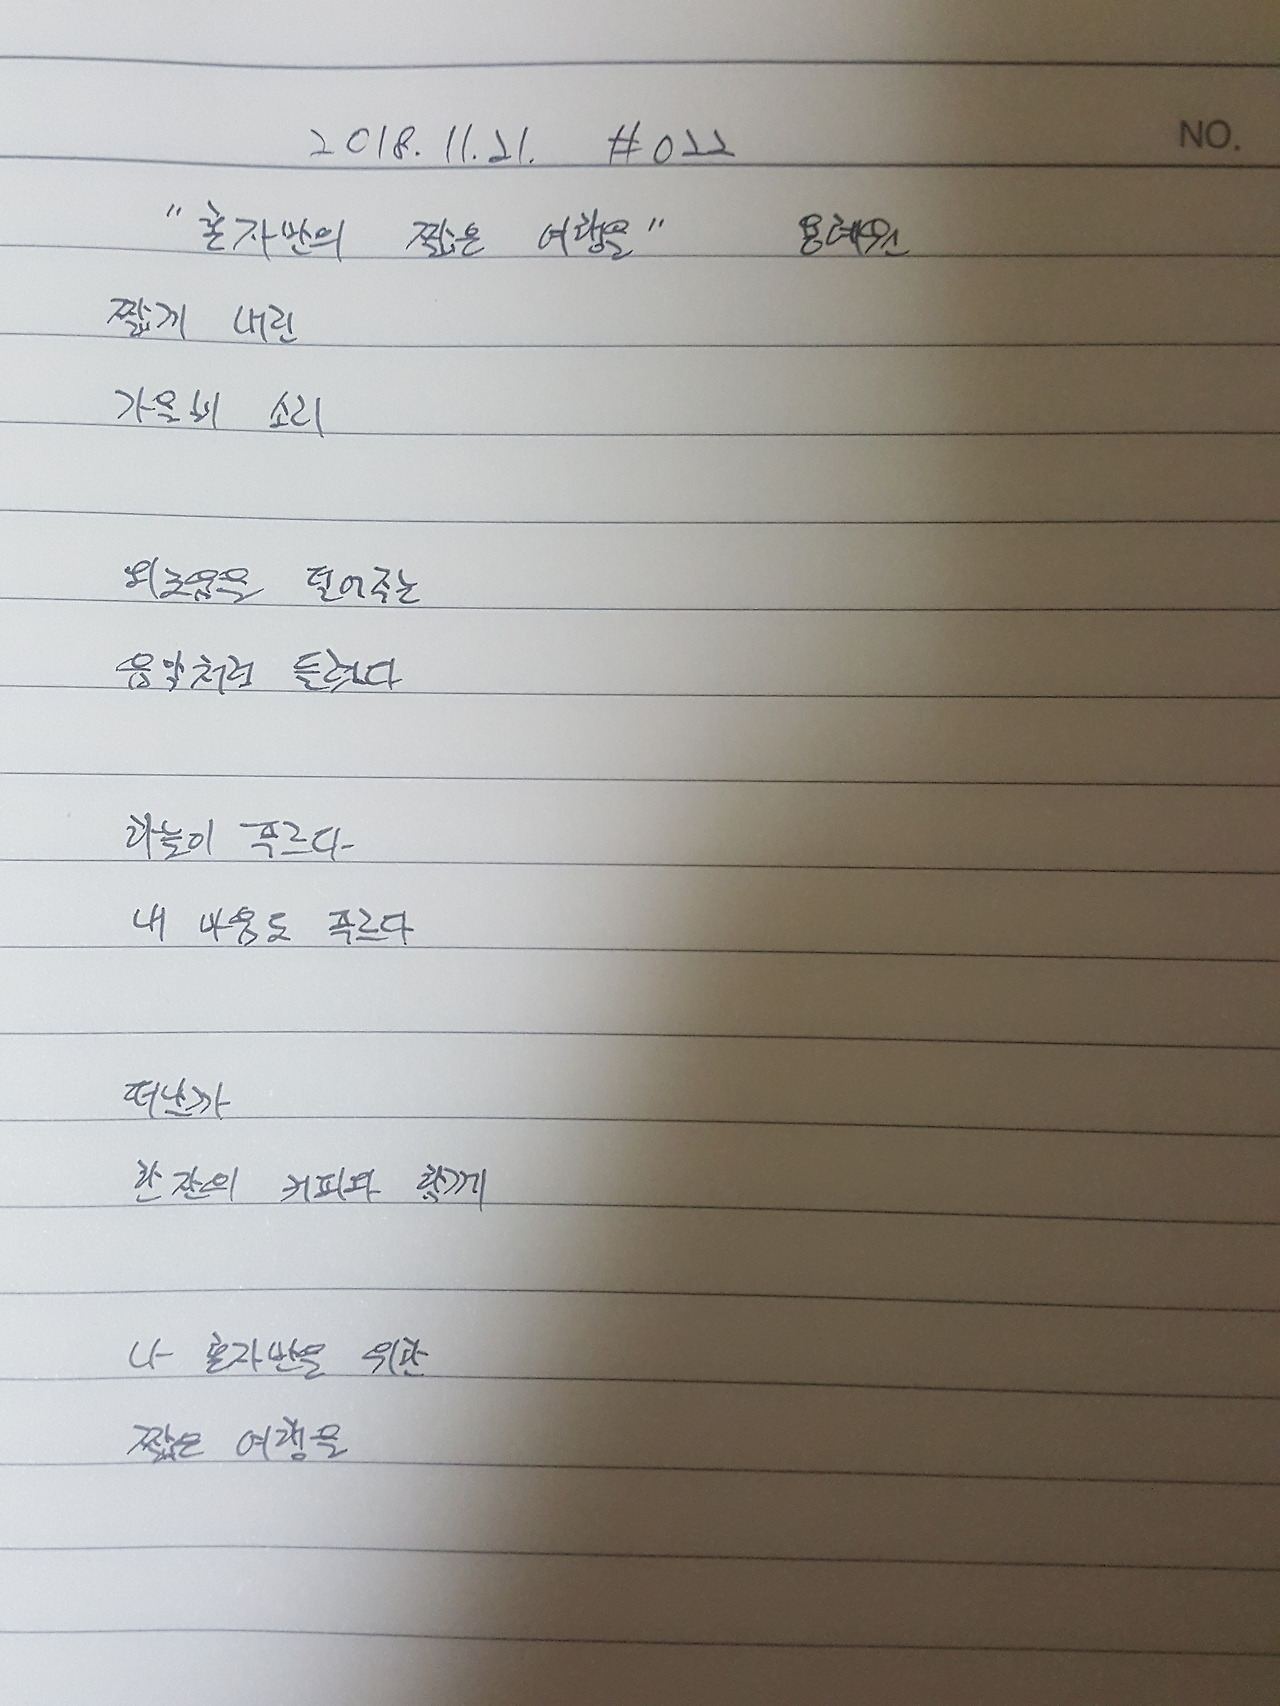 2018. 11. 21. #022
NO.
"혼자만의 짧은 여행을" 용혜원
짧게 내린
가을비 소리
외로움을 덜어주는
음악처럼 들렸다
하늘이 푸르다
내 마음도 푸르다
떠날까
한 잔의 커피와 함께
나 혼자만을 위한
짧은 여행을